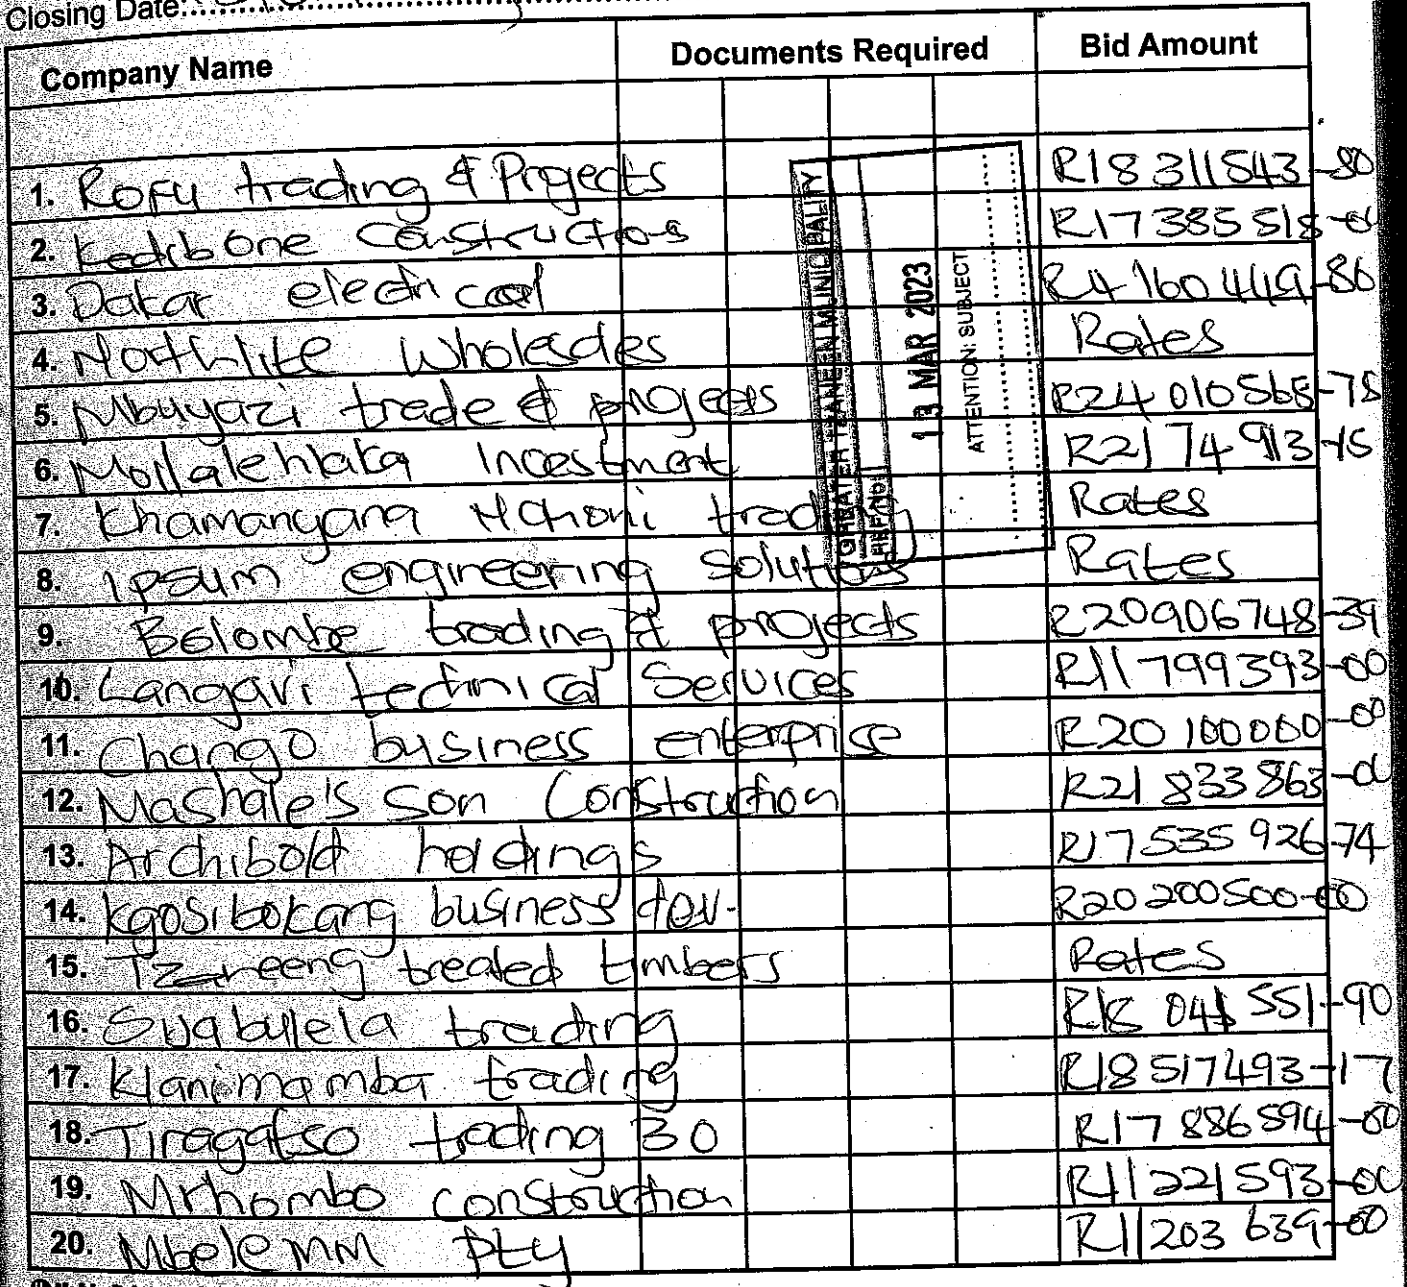 Closing Date:
Company Name Documents Required Bid Amount
1. Rofu trading & Projects R18 311543-80
2. Kedibone Constructions R17385518-00
3. Datar electrical R4 160 449-86
4. Northlite Wholesales Rates
5. Mbuyazi trade & projects R24 010568-78
6. Mollalehlaka Incestment R21 74 913-15
7. Khamanyana Hchoni trading Rates
8. Ipsum engineering Solutions Rates
9. Belombe trading & projects R20906748-39
10. Langavi technical Services R11799393-00
11. Chango business enterprise R20 100000-00
12. Mashale's Son Construction R21 833863-00
13. Archibold holdings R17535926-74
14. Kgosibokang business dev. R20200500-00
15. Tzaneeng treated timbers Rates
16. Syabulela trading R18 041 551-90
17. Klanimamba trading R18517493-17
18. Tiragatso trading 30 R17 886594-00
19. Mrhombo construction R11221593-00
20. Mbelemm Pty R11203 639-00
GREATER TZANEEN MUNICIPALITY
REF/NO:
13 MAR 2023
ATTENTION: SUBJECT